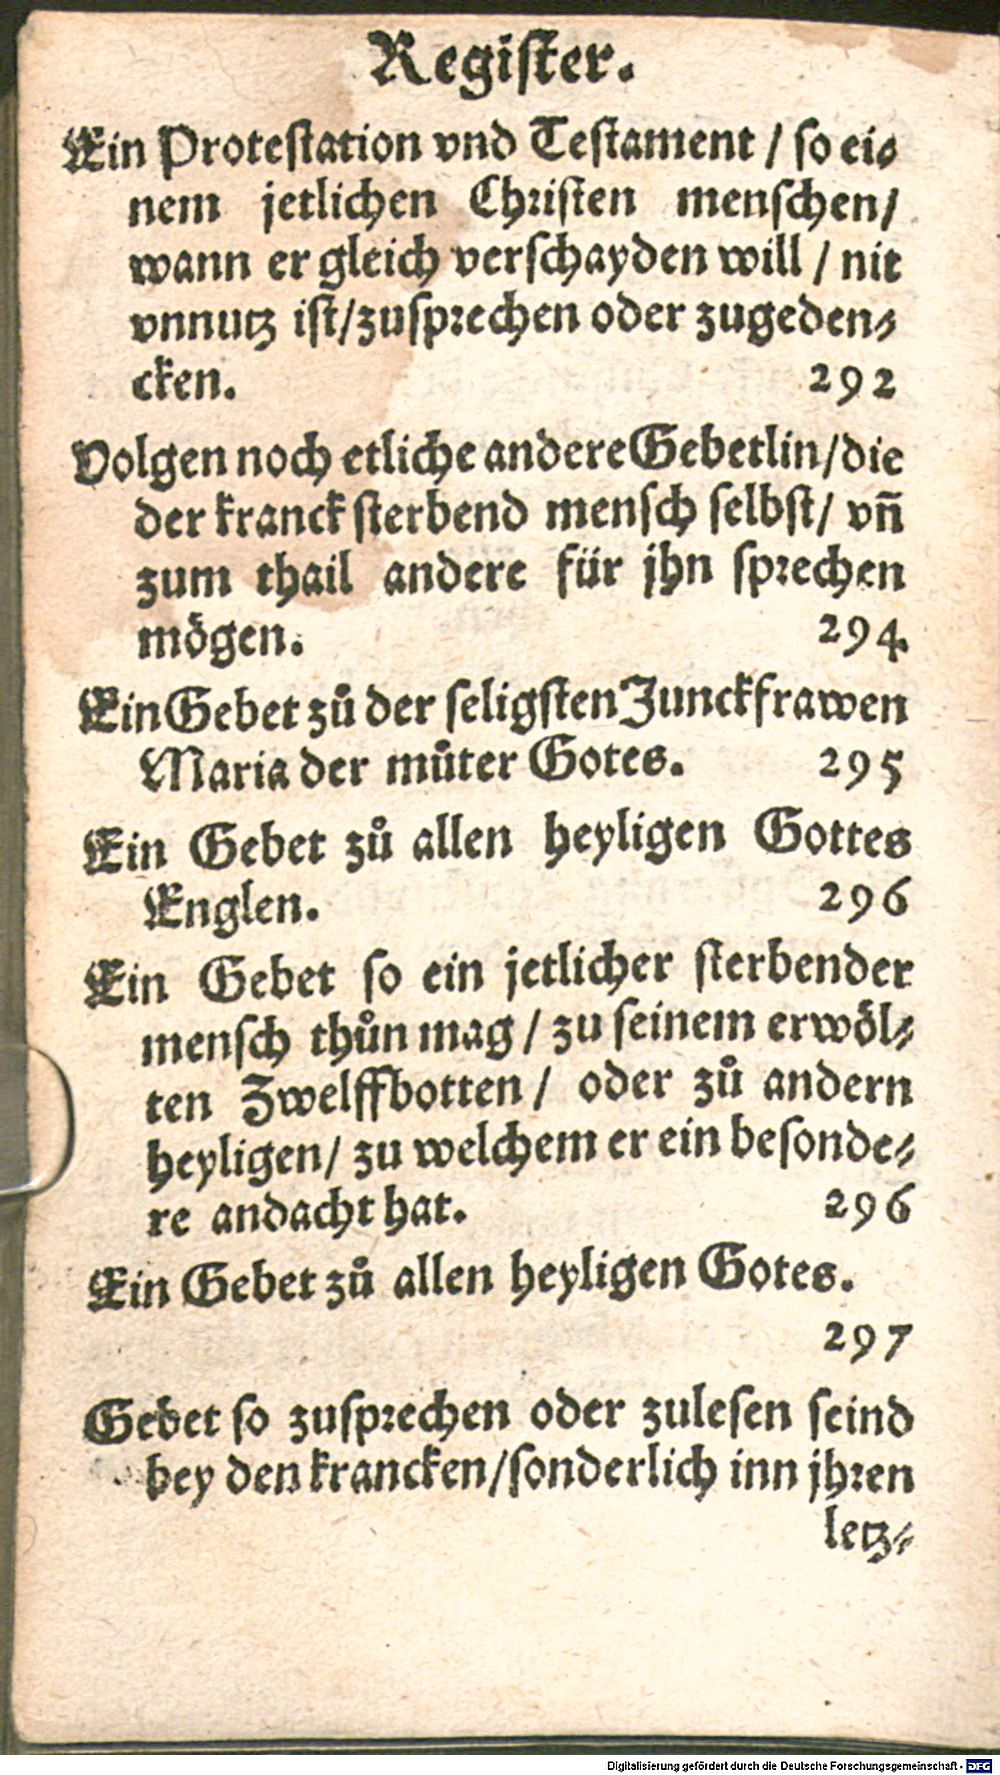 Register.
Ein Protestation vnd Testament / so ei⸗
nem jetlichen Christen menschen/
wann er gleich verschayden will / nit
vnnutz ist/zusprechen oder zugeden⸗
cken. 292
Volgen noch etliche andere Gebetlin/die
der kranck sterbend mensch selbst/ vn̄
zum thail andere für jhn sprechen
mögen. 294.
Ein Gebet zů der seligsten Junckfrawen
Maria der můter Gotes. 295
Ein Gebet zů allen heyligen Gottes
Englen. 296
Ein Gebet so ein jetlicher sterbender
mensch thůn mag / zu seinem erwöl⸗
ten Zwelffbotten / oder zů andern
heyligen/ zu welchem er ein besonde⸗
re andacht hat. 296
Ein Gebet zů allen heyligen Gotes.
297
Gebet so zusprechen oder zulesen seind
bey den krancken/sonderlich inn jhren
letz⸗
Digitalisierung gefördert durch die Deutsche Forschungsgemeinschaft - DFG